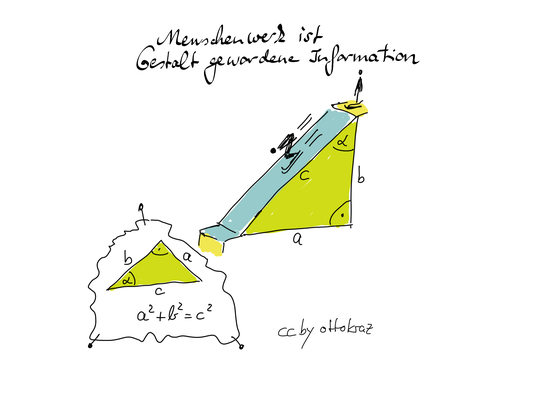 Menschenwerk ist
Gestalt gewordene Information
α
c
b
a
b
a
α
c
a² + b² = c²
cc by ottokraz